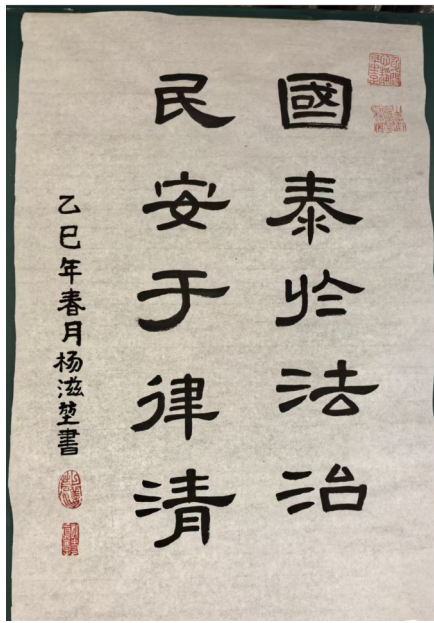 國泰於法治
民安于律清
乙巳年春月杨滋堃書